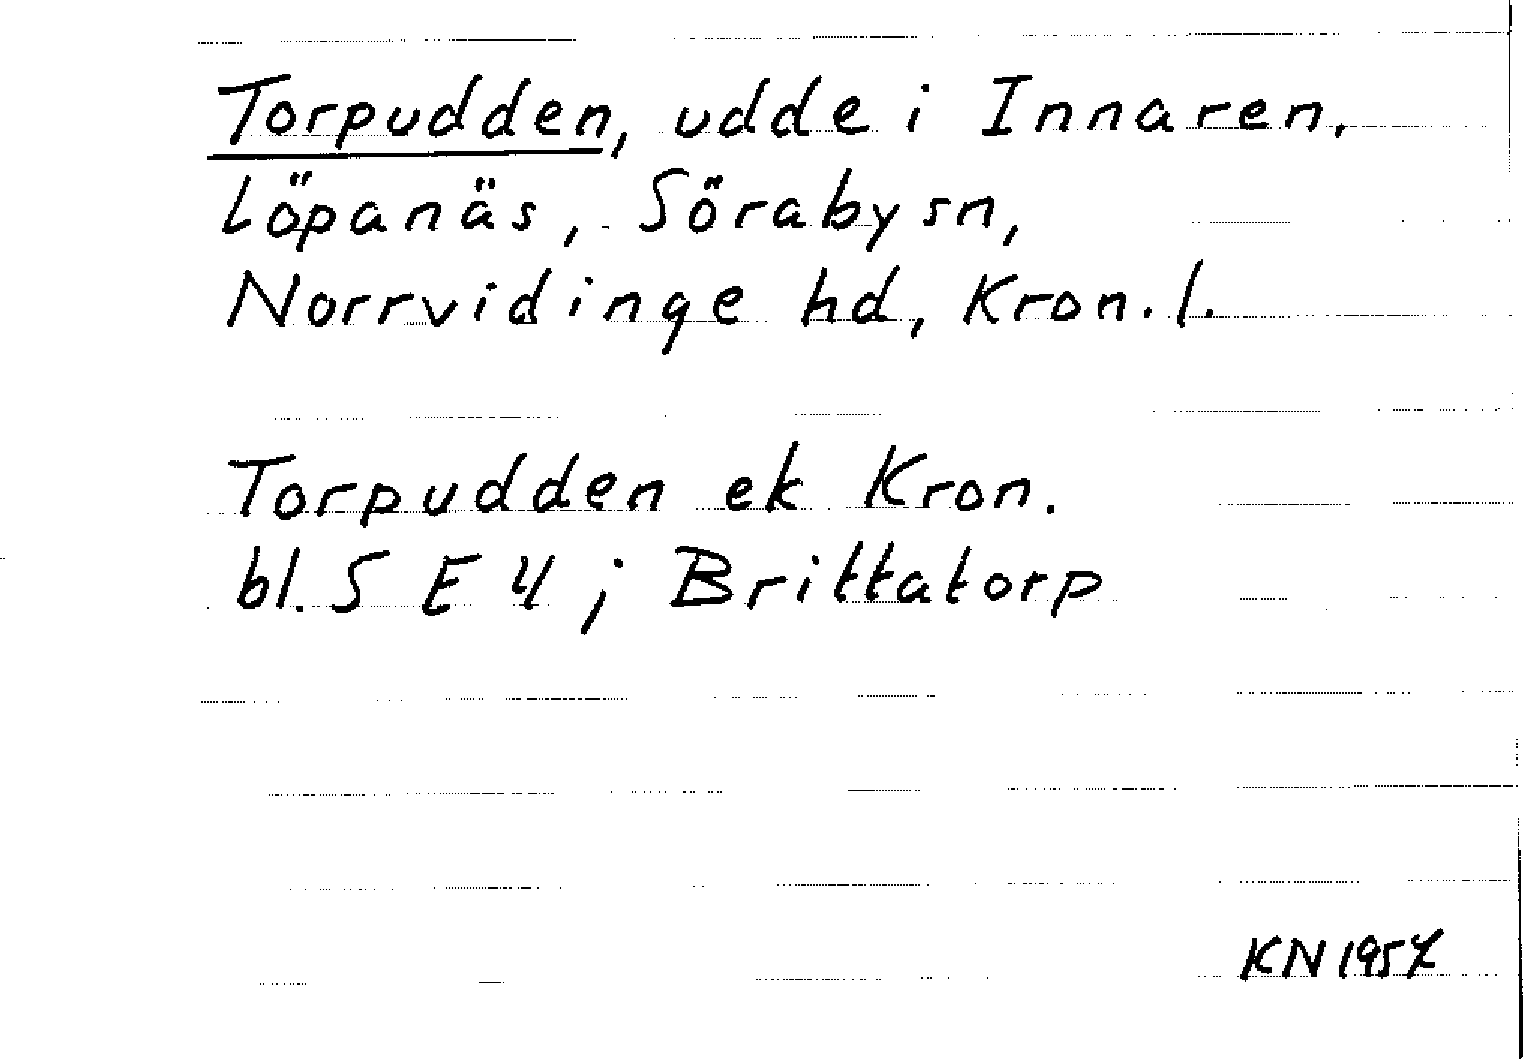 Torpudden, udde i Innaren,
Löpanäs, Sörabysn,
Norrvidinge hd, Kron. l.
Torpudden ek Kron.
bl. 5 E 4; Brittatorp
KN 1957